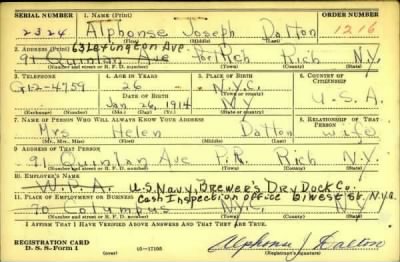 SERIAL NUMBER 1. NAME (Print) ORDER NUMBER
2324 Alphonse Joseph Dalton 1216
2. ADDRESS (Print) 63 Lexington Ave.
91 Quinlan Ave Port Rich Rich N.Y.
(Number and street or R. F. D. number) (Town) (County) (State)
3. TELEPHONE 4. AGE IN YEARS 5. PLACE OF BIRTH 6. COUNTRY OF CITIZENSHIP
26 N.Y.C.
DATE OF BIRTH
Jan 26, 1914 N.Y. U.S.A.
(Mo.) (Day) (Yr.) (State or country)
7. NAME OF PERSON WHO WILL ALWAYS KNOW YOUR ADDRESS 8. RELATIONSHIP OF THAT PERSON
Mrs Helen Dalton wife
(Mr., Mrs., Miss) (First) (Middle) (Last)
9. ADDRESS OF THAT PERSON
91 Quinlan Ave P.R. Rich N.Y.
(Number and street or R. F. D. number) (Town) (County) (State)
10. EMPLOYER'S NAME
W.P.A. U.S. Navy, Brewer's Dry Dock Co.
11. PLACE OF EMPLOYMENT OR BUSINESS Inspection office West St. N.Y.C.
70 Columbus N.Y.C. N.Y.
(Number and street or R. F. D. number) (Town) (County) (State)
I AFFIRM THAT I HAVE VERIFIED ABOVE ANSWERS AND THAT THEY ARE TRUE.
REGISTRATION CARD
D. S. S. Form 1 (over) 16—17105 Alphonse J Dalton
(Registrant's signature)